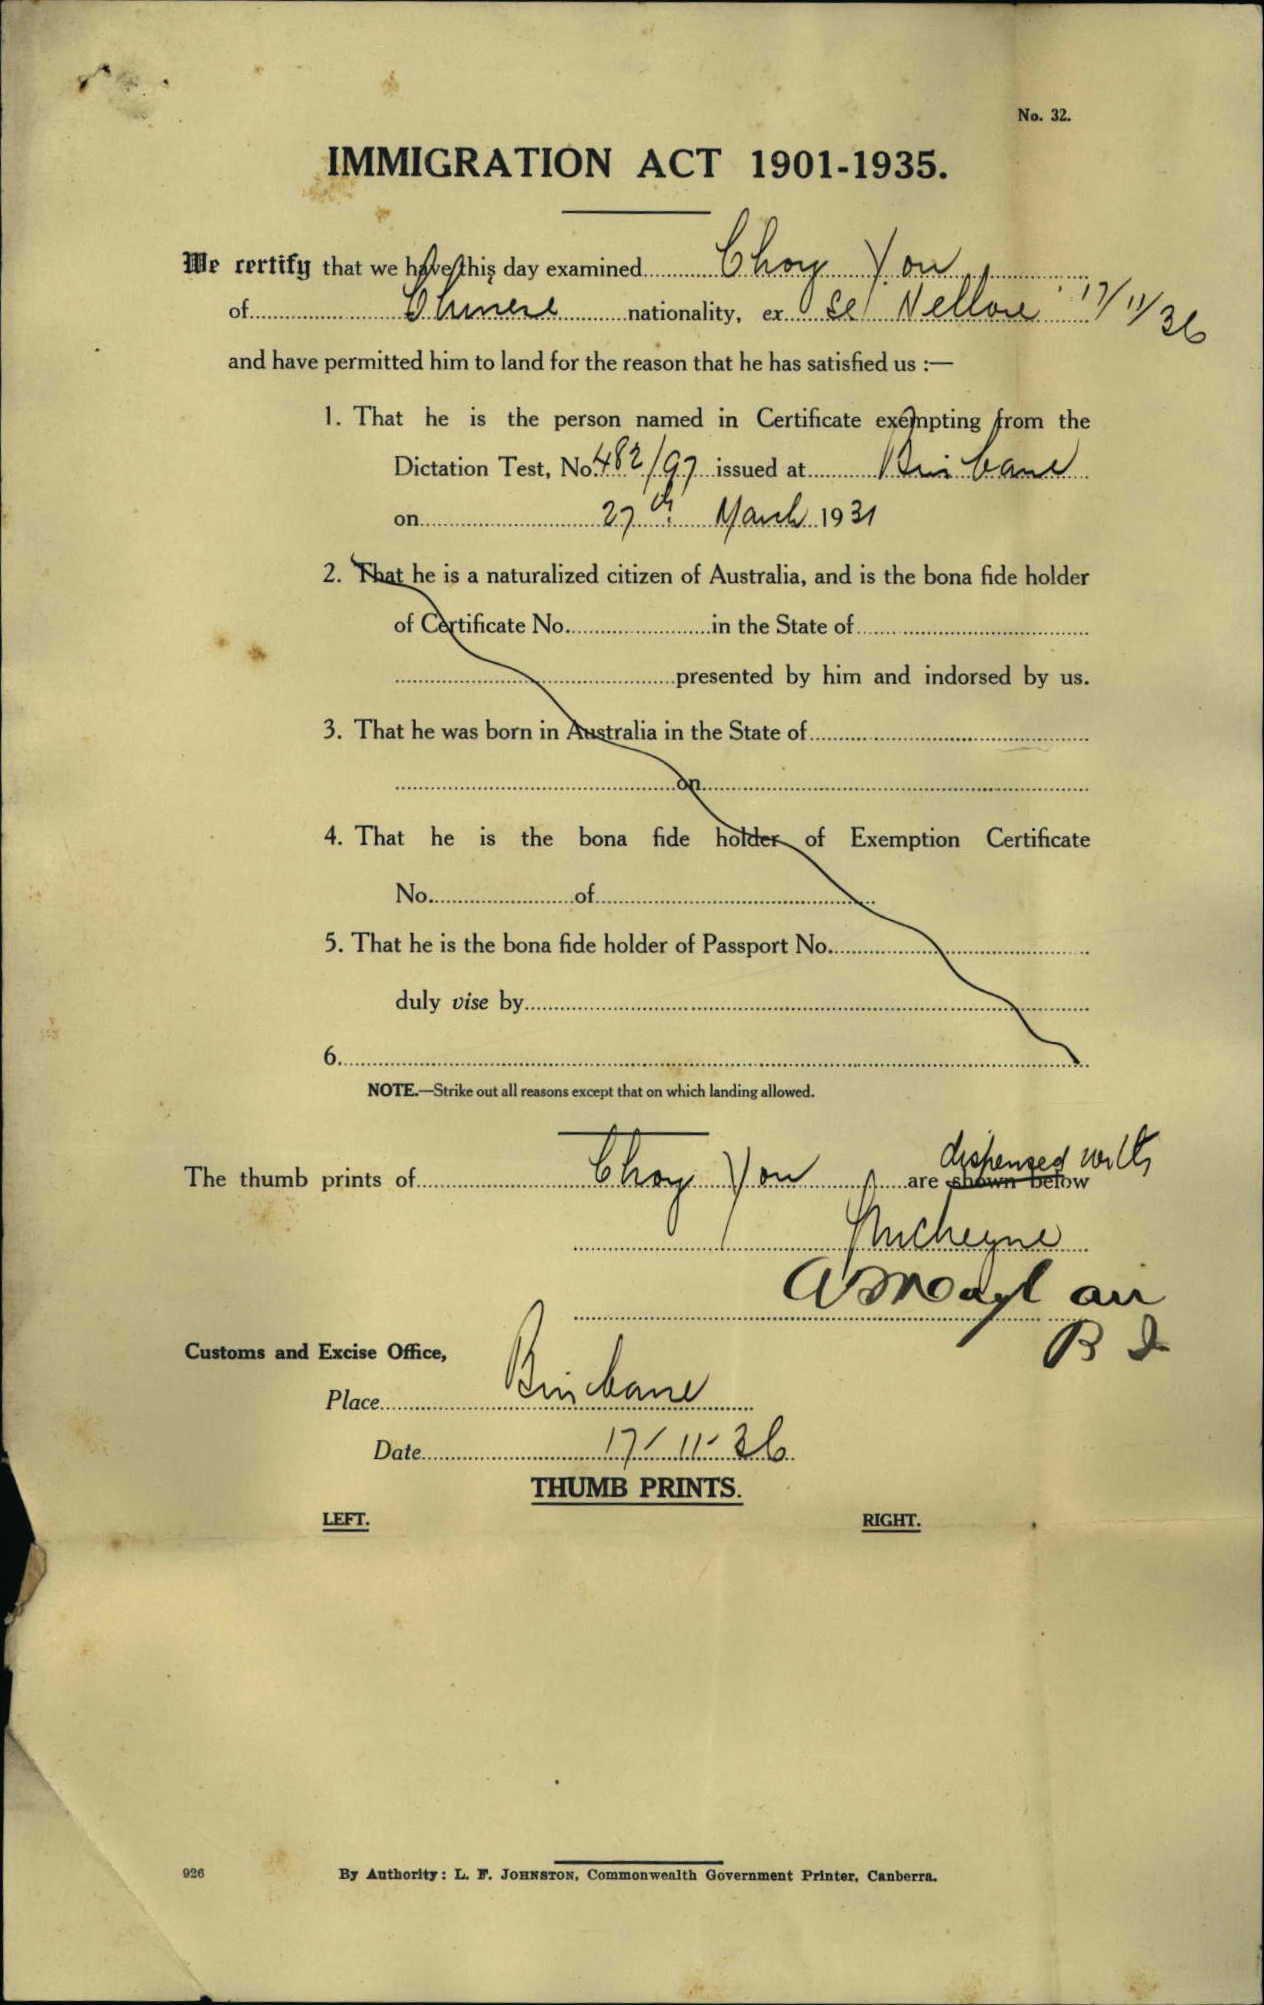 No. 32.
IMMIGRATION ACT 1901-1935.
We certify that we have this day examined Choy Yon
of Chinese nationality, ex Nellore 17/11/36
and have permitted him to land for the reason that he has satisfied us :—
1. That he is the person named in Certificate exempting from the
Dictation Test, No. 482/97 issued at Brisbane
on 27th March 1931
2. That he is a naturalized citizen of Australia, and is the bona fide holder
of Certificate No. in the State of
presented by him and indorsed by us.
3. That he was born in Australia in the State of
on
4. That he is the bona fide holder of Exemption Certificate
No. of
5. That he is the bona fide holder of Passport No.
duly vise by
6.
NOTE.—Strike out all reasons except that on which landing allowed.
dispensed with
The thumb prints of Choy Yon are shown below
Customs and Excise Office,
Place Brisbane
Date 17-11-36
THUMB PRINTS.
LEFT. RIGHT.
926 By Authority: L. F. JOHNSTON, Commonwealth Government Printer, Canberra.